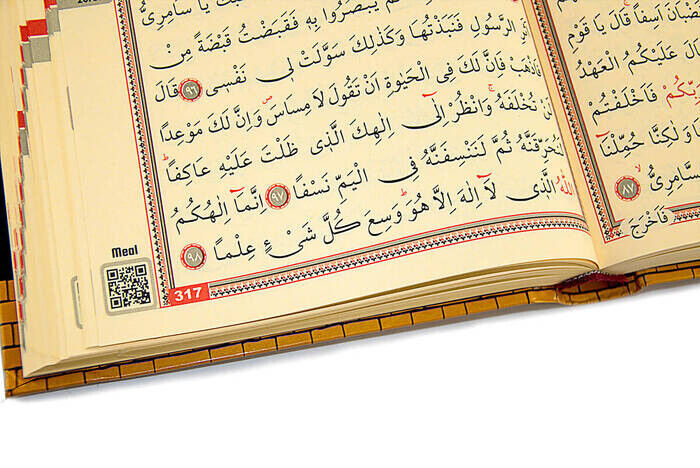 اَسِفًا قَالَ يَا قَوْمِ
عَلَيْكُمُ الْعَهْدُ
رَبِّكُمْ فَاَخْلَفْتُمْ
وَلٰكِنَّا حُمِّلْنَٓا
السَّامِرِيُّ ﴿٨٧﴾
فَاَخْرَجَ
يَا سَامِرِيُّ
يَبْصُرُوا بِه۪ فَقَبَضْتُ قَبْضَةً مِنْ
الرَّسُولِ فَنَبَذْتُهَا وَكَذٰلِكَ سَوَّلَتْ ل۪ي نَفْس۪ي ﴿٩٦﴾ قَالَ
فَاذْهَبْ فَاِنَّ لَكَ فِي الْحَيٰوةِ اَنْ تَقُولَ لَا مِسَاسَۖ وَاِنَّ لَكَ مَوْعِدًا
لَنْ تُخْلَفَهُۚ وَانْظُرْ اِلٰٓى اِلٰهِكَ الَّذ۪ي ظَلْتَ عَلَيْهِ عَاكِفًاۜ
لَنُحَرِّقَنَّهُ ثُمَّ لَنَنْسِفَنَّهُ فِي الْيَمِّ نَسْفًا ﴿٩٧﴾ اِنَّمَٓا اِلٰهُكُمُ
اللّٰهُ الَّذ۪ي لَٓا اِلٰهَ اِلَّا هُوَۜ وَسِعَ كُلَّ شَيْءٍ عِلْمًا ﴿٩٨﴾
Meal
317